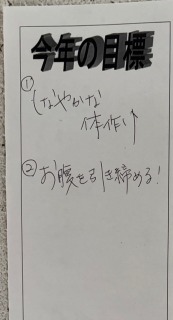 今年の目標
①
しなやかな
体作り
② お腹を引き締める!